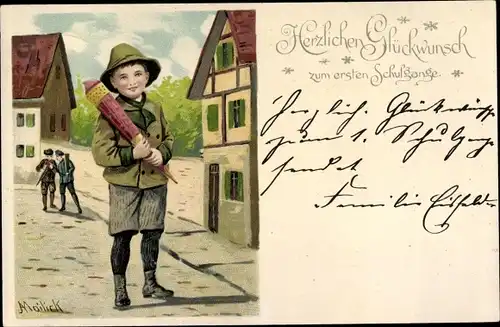 Herzlichen Glückwunsch
zum ersten Schulgange.
Herzlich. Glückwünsche
zum 1. Schulgang
sendet
Familie
Mailick